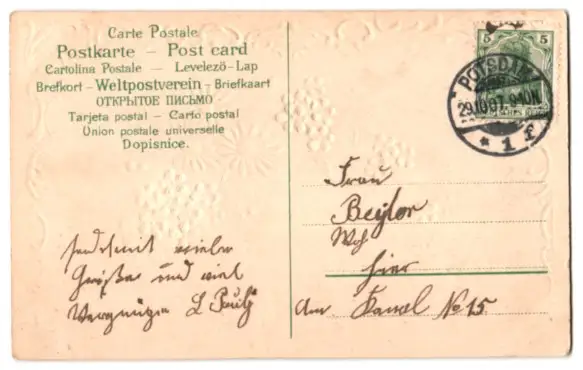 Carte Postale
Postkarte – Post card
Cartolina Postale – Levelező-Lap
Brefkort - Weltpostverein - Briefkaart
ОТКРЫТОЕ ПИСЬМО
Tarjeta postal – Carto postal
Union postale universelle
Dopisnice.
5 5
POTSDAM
29.10.07. 9-10N.
* 1 f
Frau
Beyler
hier
Am Kanal No 15
vieler
Grüße und viel
Vergnügen